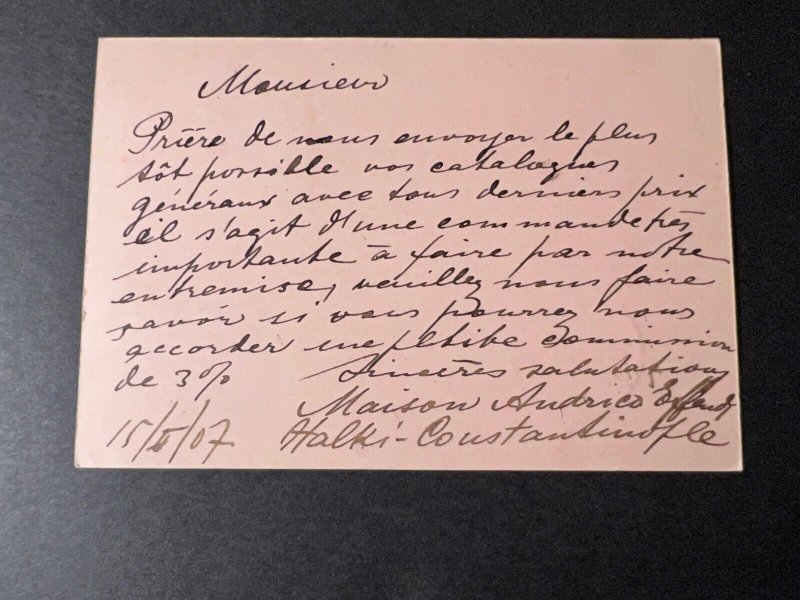 Monsieur
Prière de nous envoyer le plus
tôt possible vos catalogues
généraux avec tous derniers prix
il s'agit d'une commande très
importante à faire par notre
entremise, veuillez nous faire
savoir si vous pourrez nous
accorder une petite Commission
de 3%
Sincères salutations
Maison Andrico Effendi
15/II/07 Halki-Constantinople